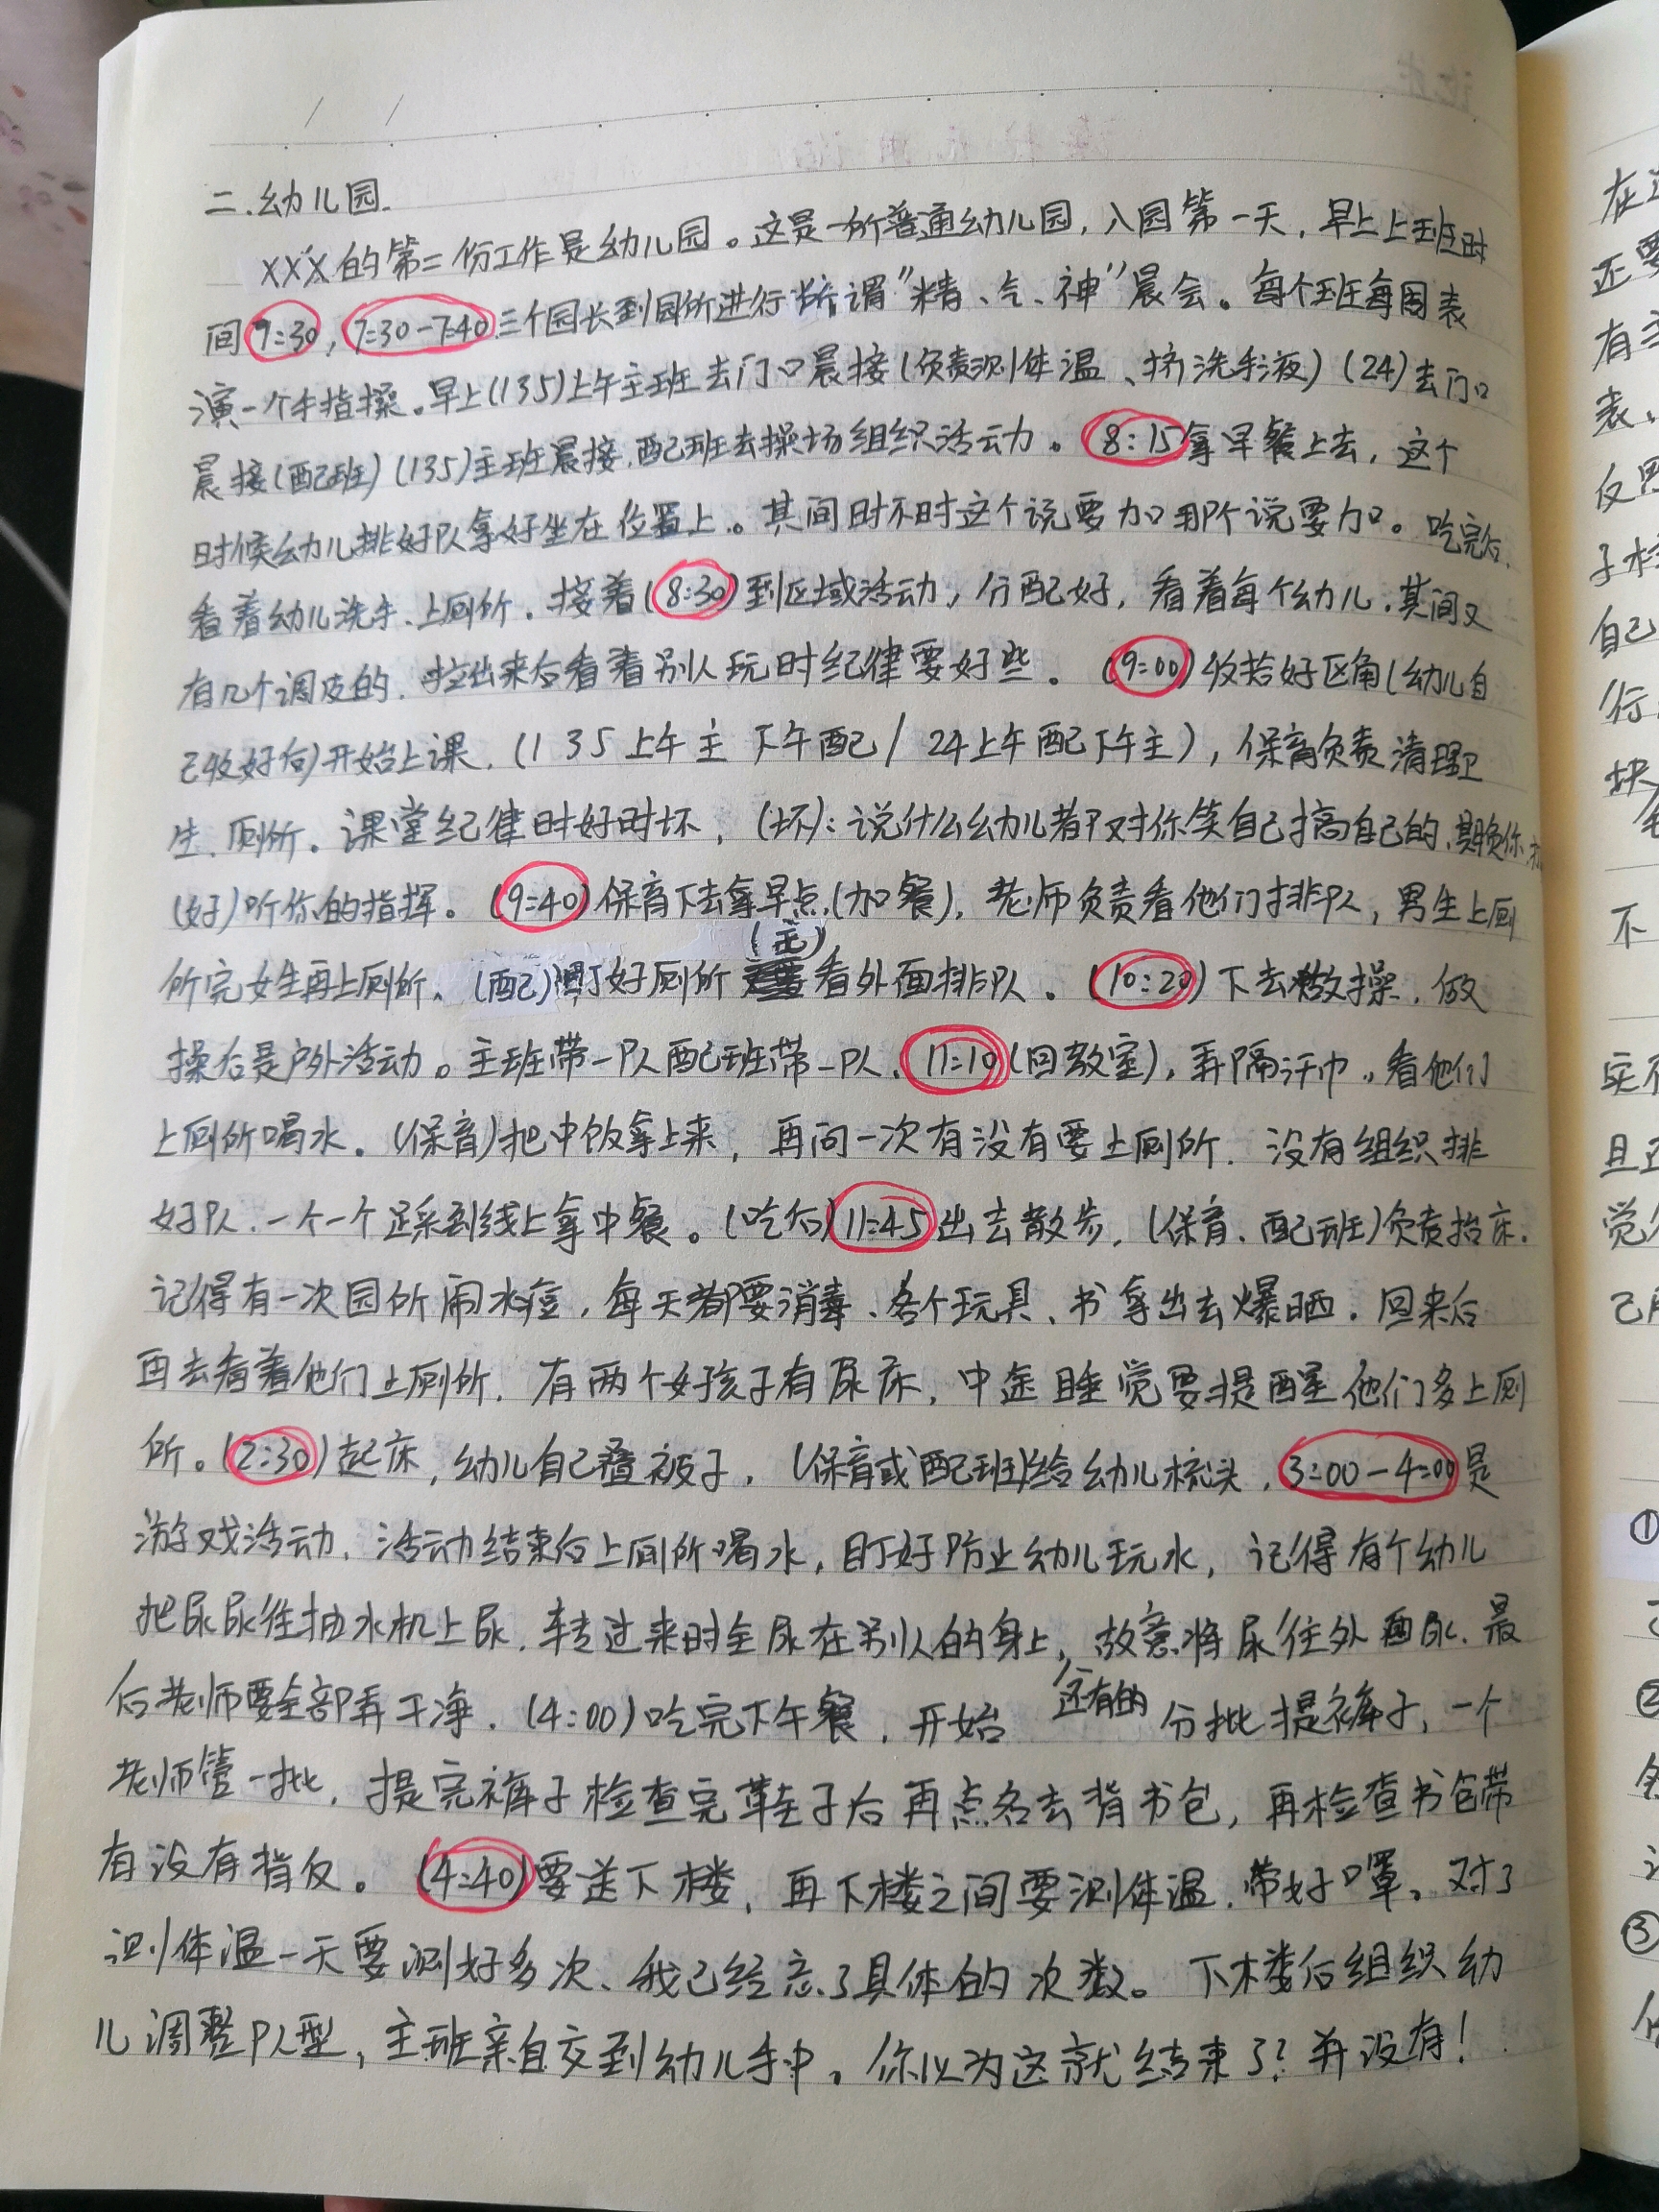 二.幼儿园.
XXX的第二份工作是幼儿园。这是一所普通幼儿园,入园第一天,早上上班时
间7:30,7:30-7:40三个园长到园所进行所谓"精、气、神"晨会。每个班每周表
演一个手指操。早上(135)上午主班去门口晨接(负责测体温、挤洗手液)(24)去门口
晨接(配班)(135)主班晨接,配班去操场组织活动。8:15拿早餐上去,这个
时候幼儿排好队拿好坐在位置上。其间时不时这个说要加那个说要加。吃完后,
看着幼儿洗手、上厕所。接着(8:30)到区域活动,分配好,看着每个幼儿.其间又
有几个调皮的,拉出来后看着别人玩时纪律要好些。(9:00)收拾好区角(幼儿自
己收好后)开始上课.(135上午主 下午配/24上午配下午主),保育负责清理卫
生、厕所。课堂纪律时好时坏,(坏):说什么幼儿都对你笑自己搞自己的,
(好)听你的指挥。(9:40)保育下去拿早点.(加餐),老师负责看他们排队,男生上厕
所完女生再上厕所。(配)盯好厕所(主)看外面排队。(10:20)下去做操.做
操后是户外活动。主班带一队配班带一队、11:10(回教室),弄隔汗巾,看他们
上厕所喝水。(保育)把中饭拿上来,再问一次有没有要上厕所.没有组织排
好队、一个一个踩到线上拿中餐。(吃后)11:45出去散步,(保育、配班)负责抬床.
记得有一次园所闹水痘,每天都要消毒、各个玩具、书拿出去爆晒.回来后
再去看着他们上厕所.有两个好孩子有尿床,中途睡觉要提醒他们多上厕
所。(2:30)起床,幼儿自己叠被子.(保育或配班)给幼儿梳头,3:00-4:00是
游戏活动、活动结束后上厕所喝水,盯好防止幼儿玩水,记得有个幼儿
把尿尿往抽水机上尿.转过来时全尿在别人的身上,故意将尿往外面尿.最
后老师要全部弄干净.(4:00)吃完下午餐.开始还有的分批提裤子,一个
老师管一批,提完裤子检查完鞋子后再点名去背书包,再检查书包带
有没有背反。(4:40)要送下楼,再下楼之间要测体温.带好口罩。对了
测体温一天要测好多次、我已经忘了具体的次数。下楼后组织幼
儿调整队型,主班亲自交到幼儿手中。你以为这就结束了?并没有!